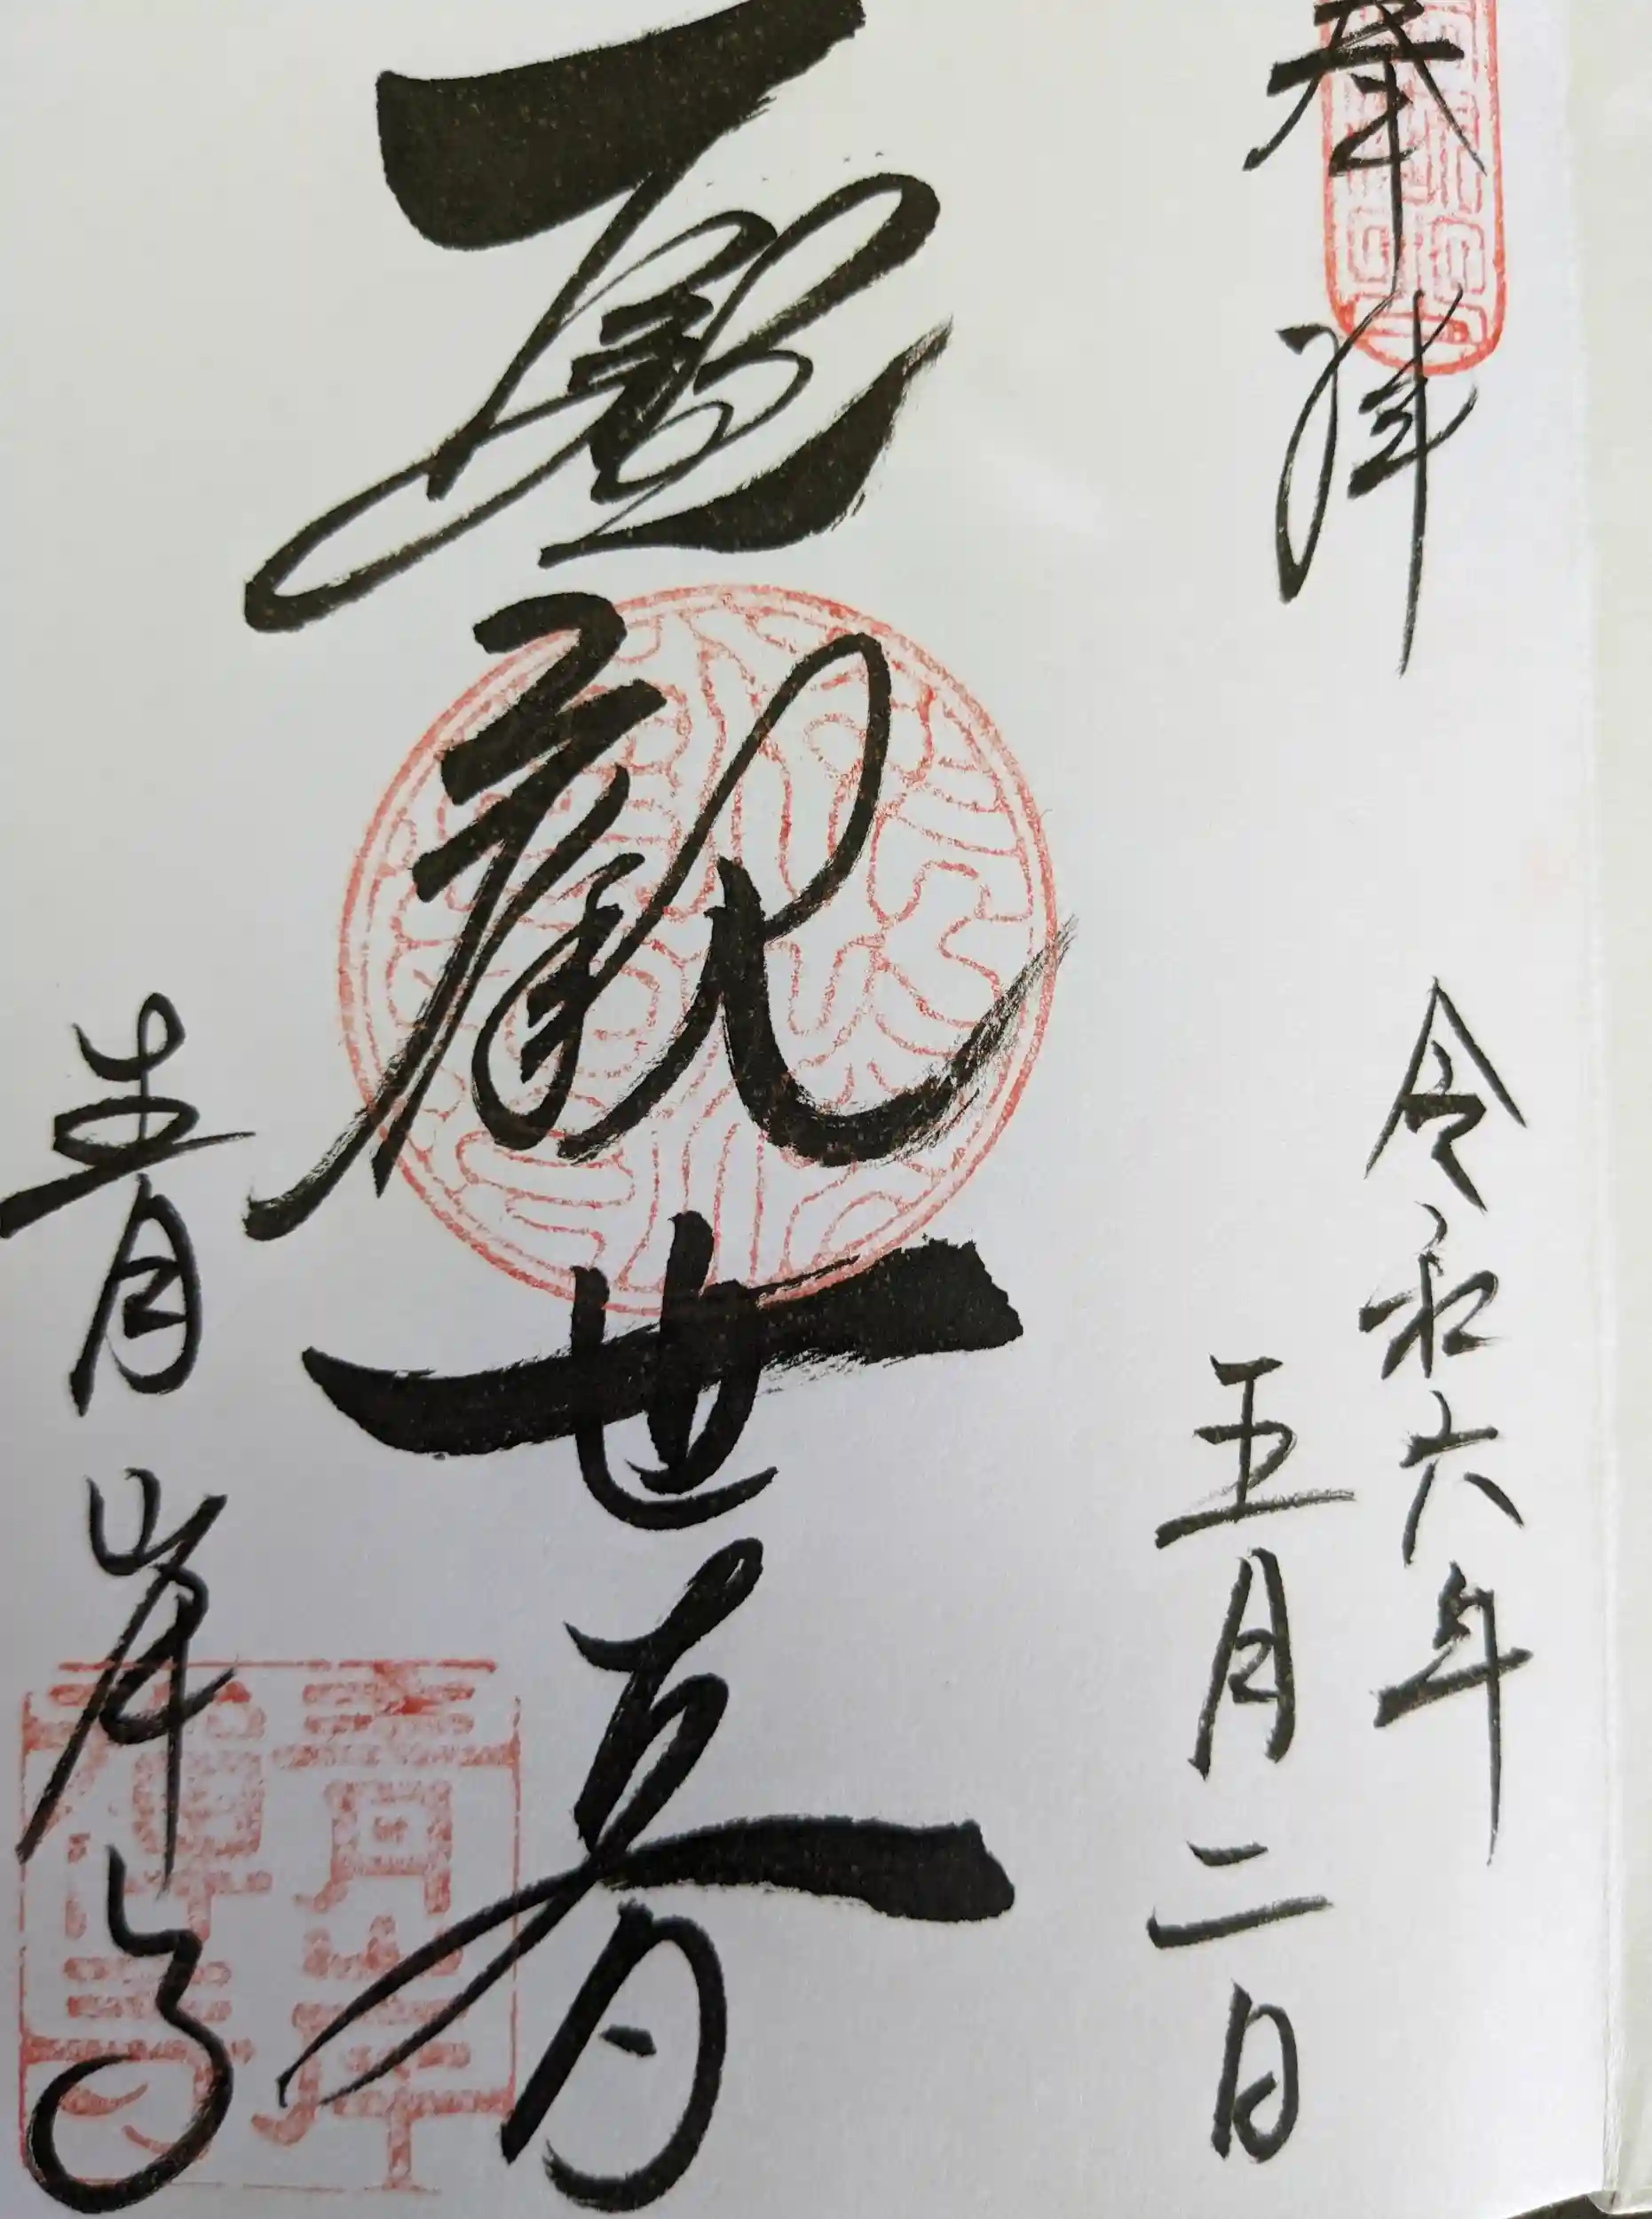 奉拝
令和六年
五月二日
聖観世音
青岸寺
青岸
禪寺